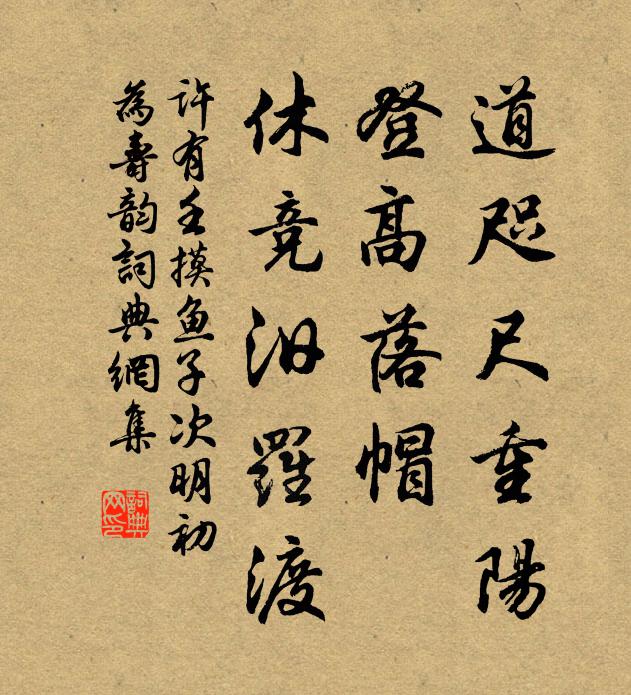 道咫尺重陽
登高落帽
休竞汨羅渡
許有壬摸魚子次明初
為壽韵詞典網集
詞典網印